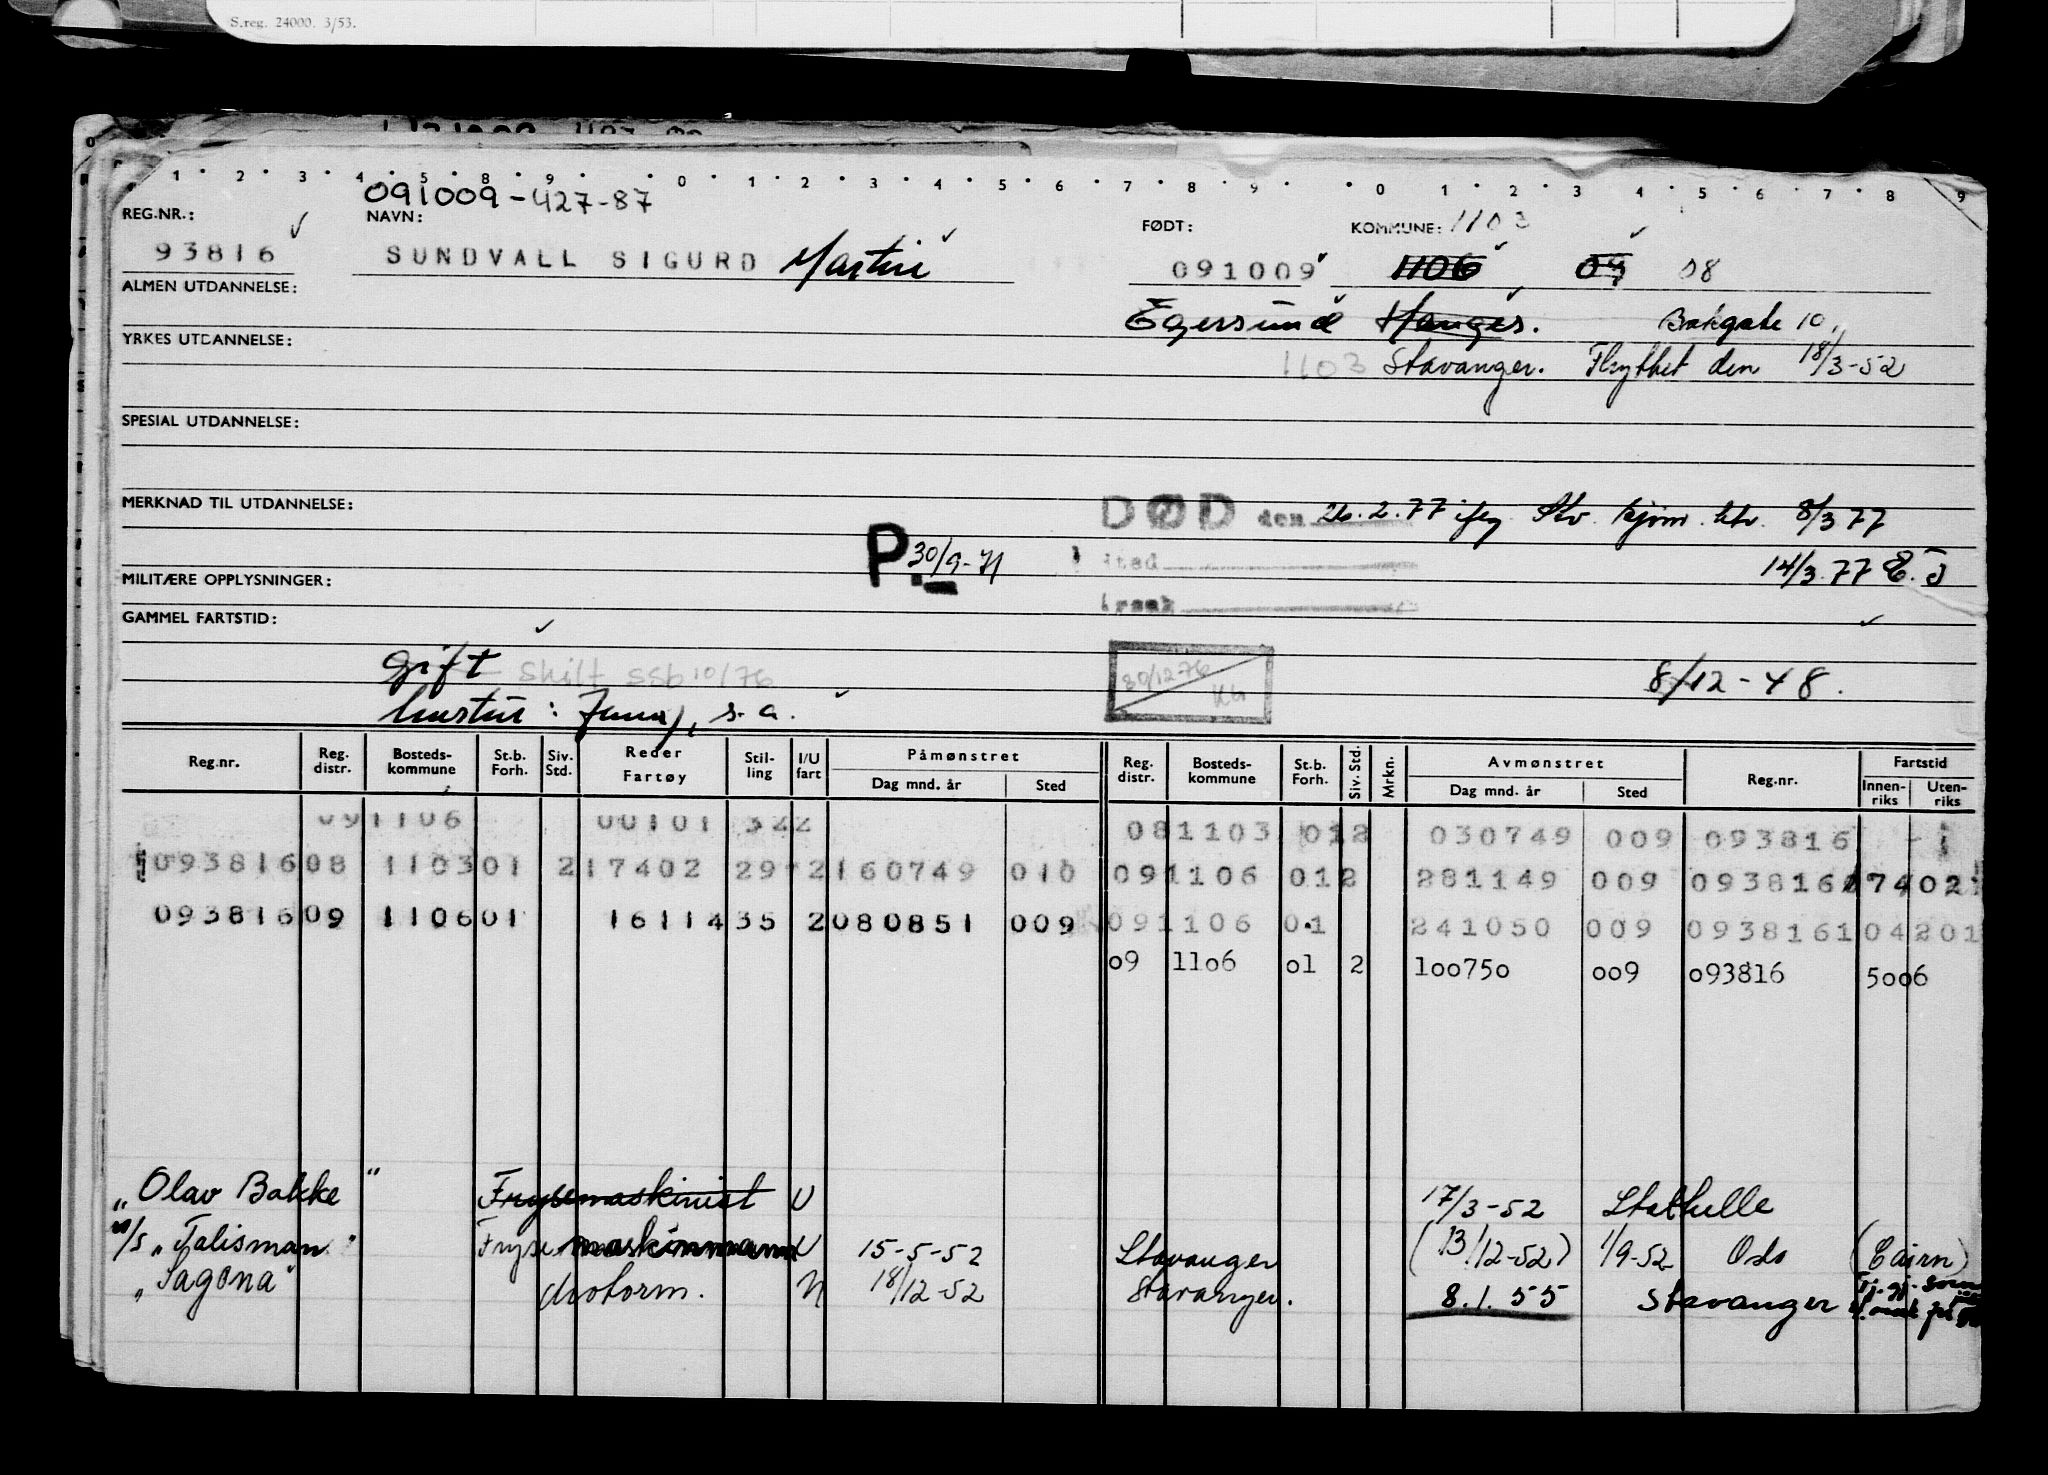 S.reg. 24000. 3/53.
1 2 3 4 5 8 9 0 1 2 3 4 5 6 7 8 9 0 1 2 3 4 5 6 7 8 9
091009-427-87
REG.NR.: NAVN: FØDT: KOMMUNE: 1103
93816 SUNDVALL SIGURD Martin 091009 1106 09 08
ALMEN UTDANNELSE:
Egersund Hauges. Bakgate 10,
YRKES UTDANNELSE:
1103 Stavanger. Flyttet den 18/3-52
SPESIAL UTDANNELSE:
MERKNAD TIL UTDANNELSE:
DØD den 26.2.77 ifng Stv. 8/3 77
P. 30/9-71
sted 14/3.77 E.J
MILITÆRE OPPLYSNINGER:
GAMMEL FARTSTID:
Gift Skilt SSB 10/76
30/12 76
8/12-48.
hustru: Jenny, s.a.
Reg.nr. Reg. distr. Bosteds-kommune St.b. Forh. Siv. Std. Reder Fartøy Stil-ling I/U fart Påmønstret Dag mnd. år Sted Reg. distr. Bosteds-kommune St.b. Forh. Siv. Std. Mrkn. Avmønstret Dag mnd. år Sted Reg.nr. Fartstid Innen-riks Uten-riks
091106 00101 322 081103 012 030749 009 093816
093816 08 1103 01 2 17402 29 2 160749 010 091106 012 281149 009 093816 17402
093816 09 1106 01 16114 35 2 080851 009 091106 01 241050 009 0938161 04201
09 1106 01 2 100750 009 093816 5006
"Olav Bakke" Frysemaskinist U 17/3-52 Stathelle
M/S "Talisman" Fryse maskinmann U 15-5-52 Stavanger (13/12-52) 1/9-52 Oslo (Cairn)
"Sagona" Motorm. N 18/12-52 Stavanger. 8.1.55 Stavanger